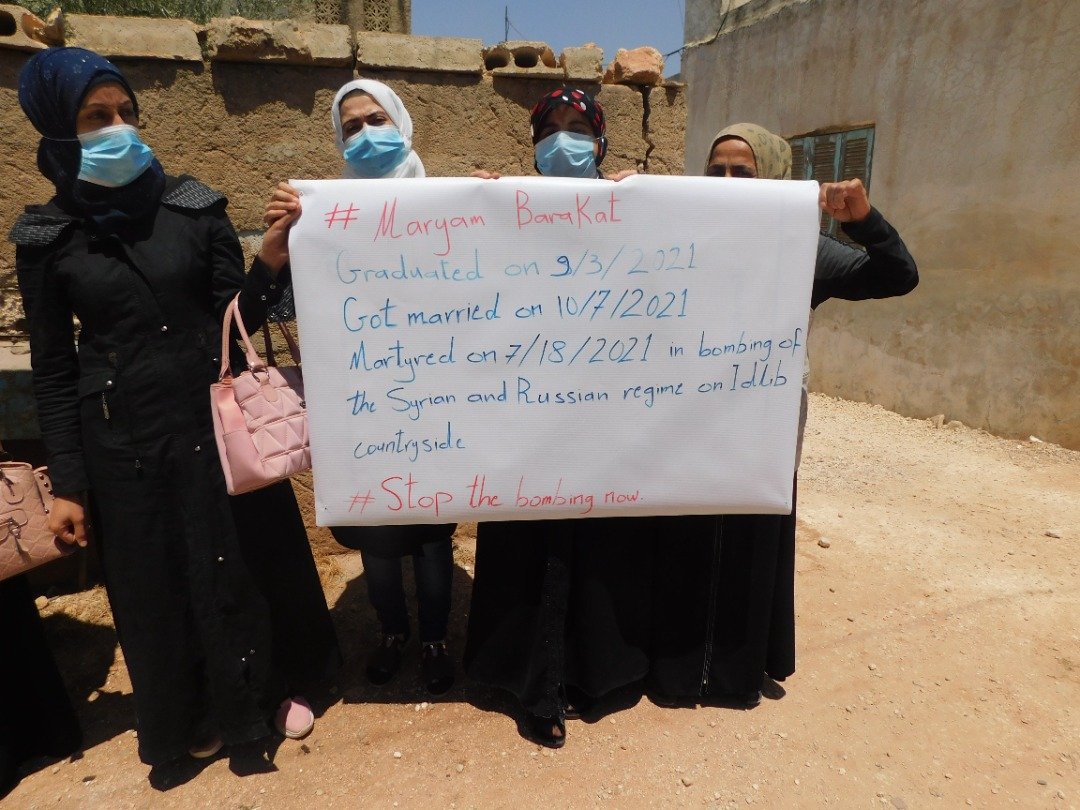 # Maryam Barakat
Graduated on 9/3/2021
Got married on 10/7/2021
Martyred on 7/18/2021 in bombing of
the Syrian and Russian regime on Idlib
countryside
# Stop the bombing now.